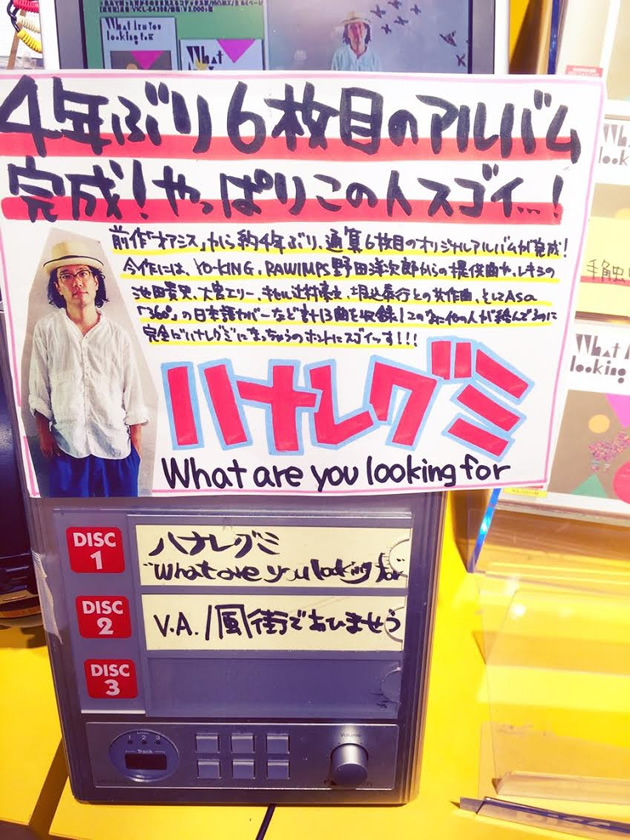 What are you looking for
4年ぶり6枚目のアルバム
完成!やっぱりこの人スゴイ…!
前作「オアシス」から約4年ぶり、通算6枚目のオリジナルアルバムが完成!
今作には、YO-KING、RAWIMPS野田洋次郎からの提供曲や、レキシの
池田貴史、大宮エリー、キセル辻村豪文、堀込泰行との共作曲、そしてASa
「360°」の日本語カバーなど計13曲を収録!この
完全に"ハナレグミ"に ホントにスゴイっす!!!
ハナレグミ
What are you looking for
DISC 1
ハナレグミ
"What are you looking for"
DISC 2
V.A./風街であひませう
DISC 3
Track
Volume
What
look
試聴
What
looking